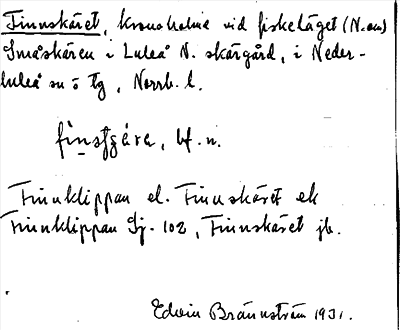 Finnskäret, kronoholme vid fiskeläget (N. om)
Småskären i Luleå N. skärgård, i Neder-
luleå sn o tg, Norrb. l.
finsfgära, bf. n.
Finnklippan el. Finnskäret ek
Finnklippan Sj. 102, Finnskäret jb.
Edvin Brännström 1931.